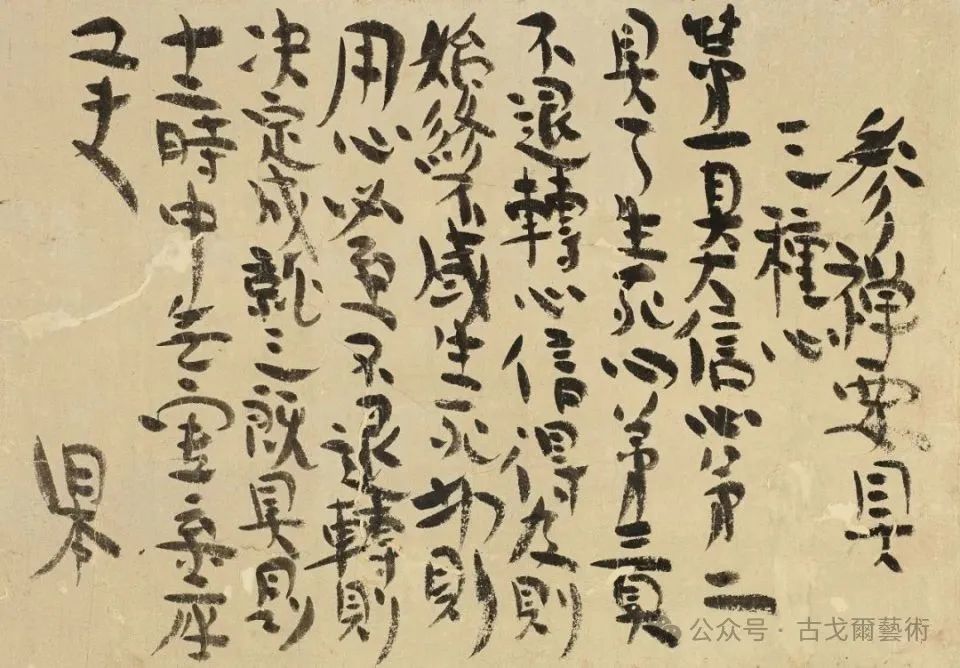 參禪要具
三種心
第一具大信心第二
具了生死心第三具
不退轉心信得及則
始終不惑生死切則
用心必重不退轉則
決定成就三既具則
十二時中無虛棄
工夫
公众号·古戈爾藝術